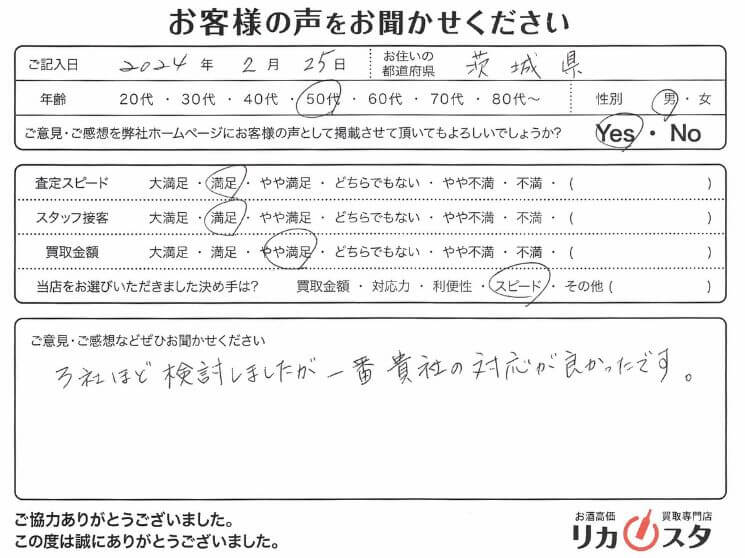 お客様の声をお聞かせください
ご記入日 2024 年 2 月 25 日 お住いの都道府県 茨城県
年齢 20代 ・ 30代 ・ 40代 ・ 50代 ・ 60代 ・ 70代 ・ 80代～ 性別 男 ・ 女
ご意見・ご感想を弊社ホームページにお客様の声として掲載させて頂いてもよろしいでしょうか? Yes ・ No
査定スピード 大満足 ・ 満足 ・ やや満足 ・ どちらでもない ・ やや不満 ・ 不満 ・ ( )
スタッフ接客 大満足 ・ 満足 ・ やや満足 ・ どちらでもない ・ やや不満 ・ 不満 ・ ( )
買取金額 大満足 ・ 満足 ・ やや満足 ・ どちらでもない ・ やや不満 ・ 不満 ・ ( )
当店をお選びいただきました決め手は? 買取金額 ・ 対応力 ・ 利便性 ・ スピード ・ その他 ( )
ご意見・ご感想などぜひお聞かせください
3社ほど検討しましたが一番貴社の対応が良かったです。
ご協力ありがとうございました。
この度は誠にありがとうございました。
お酒高価 買取専門店
リカスタ